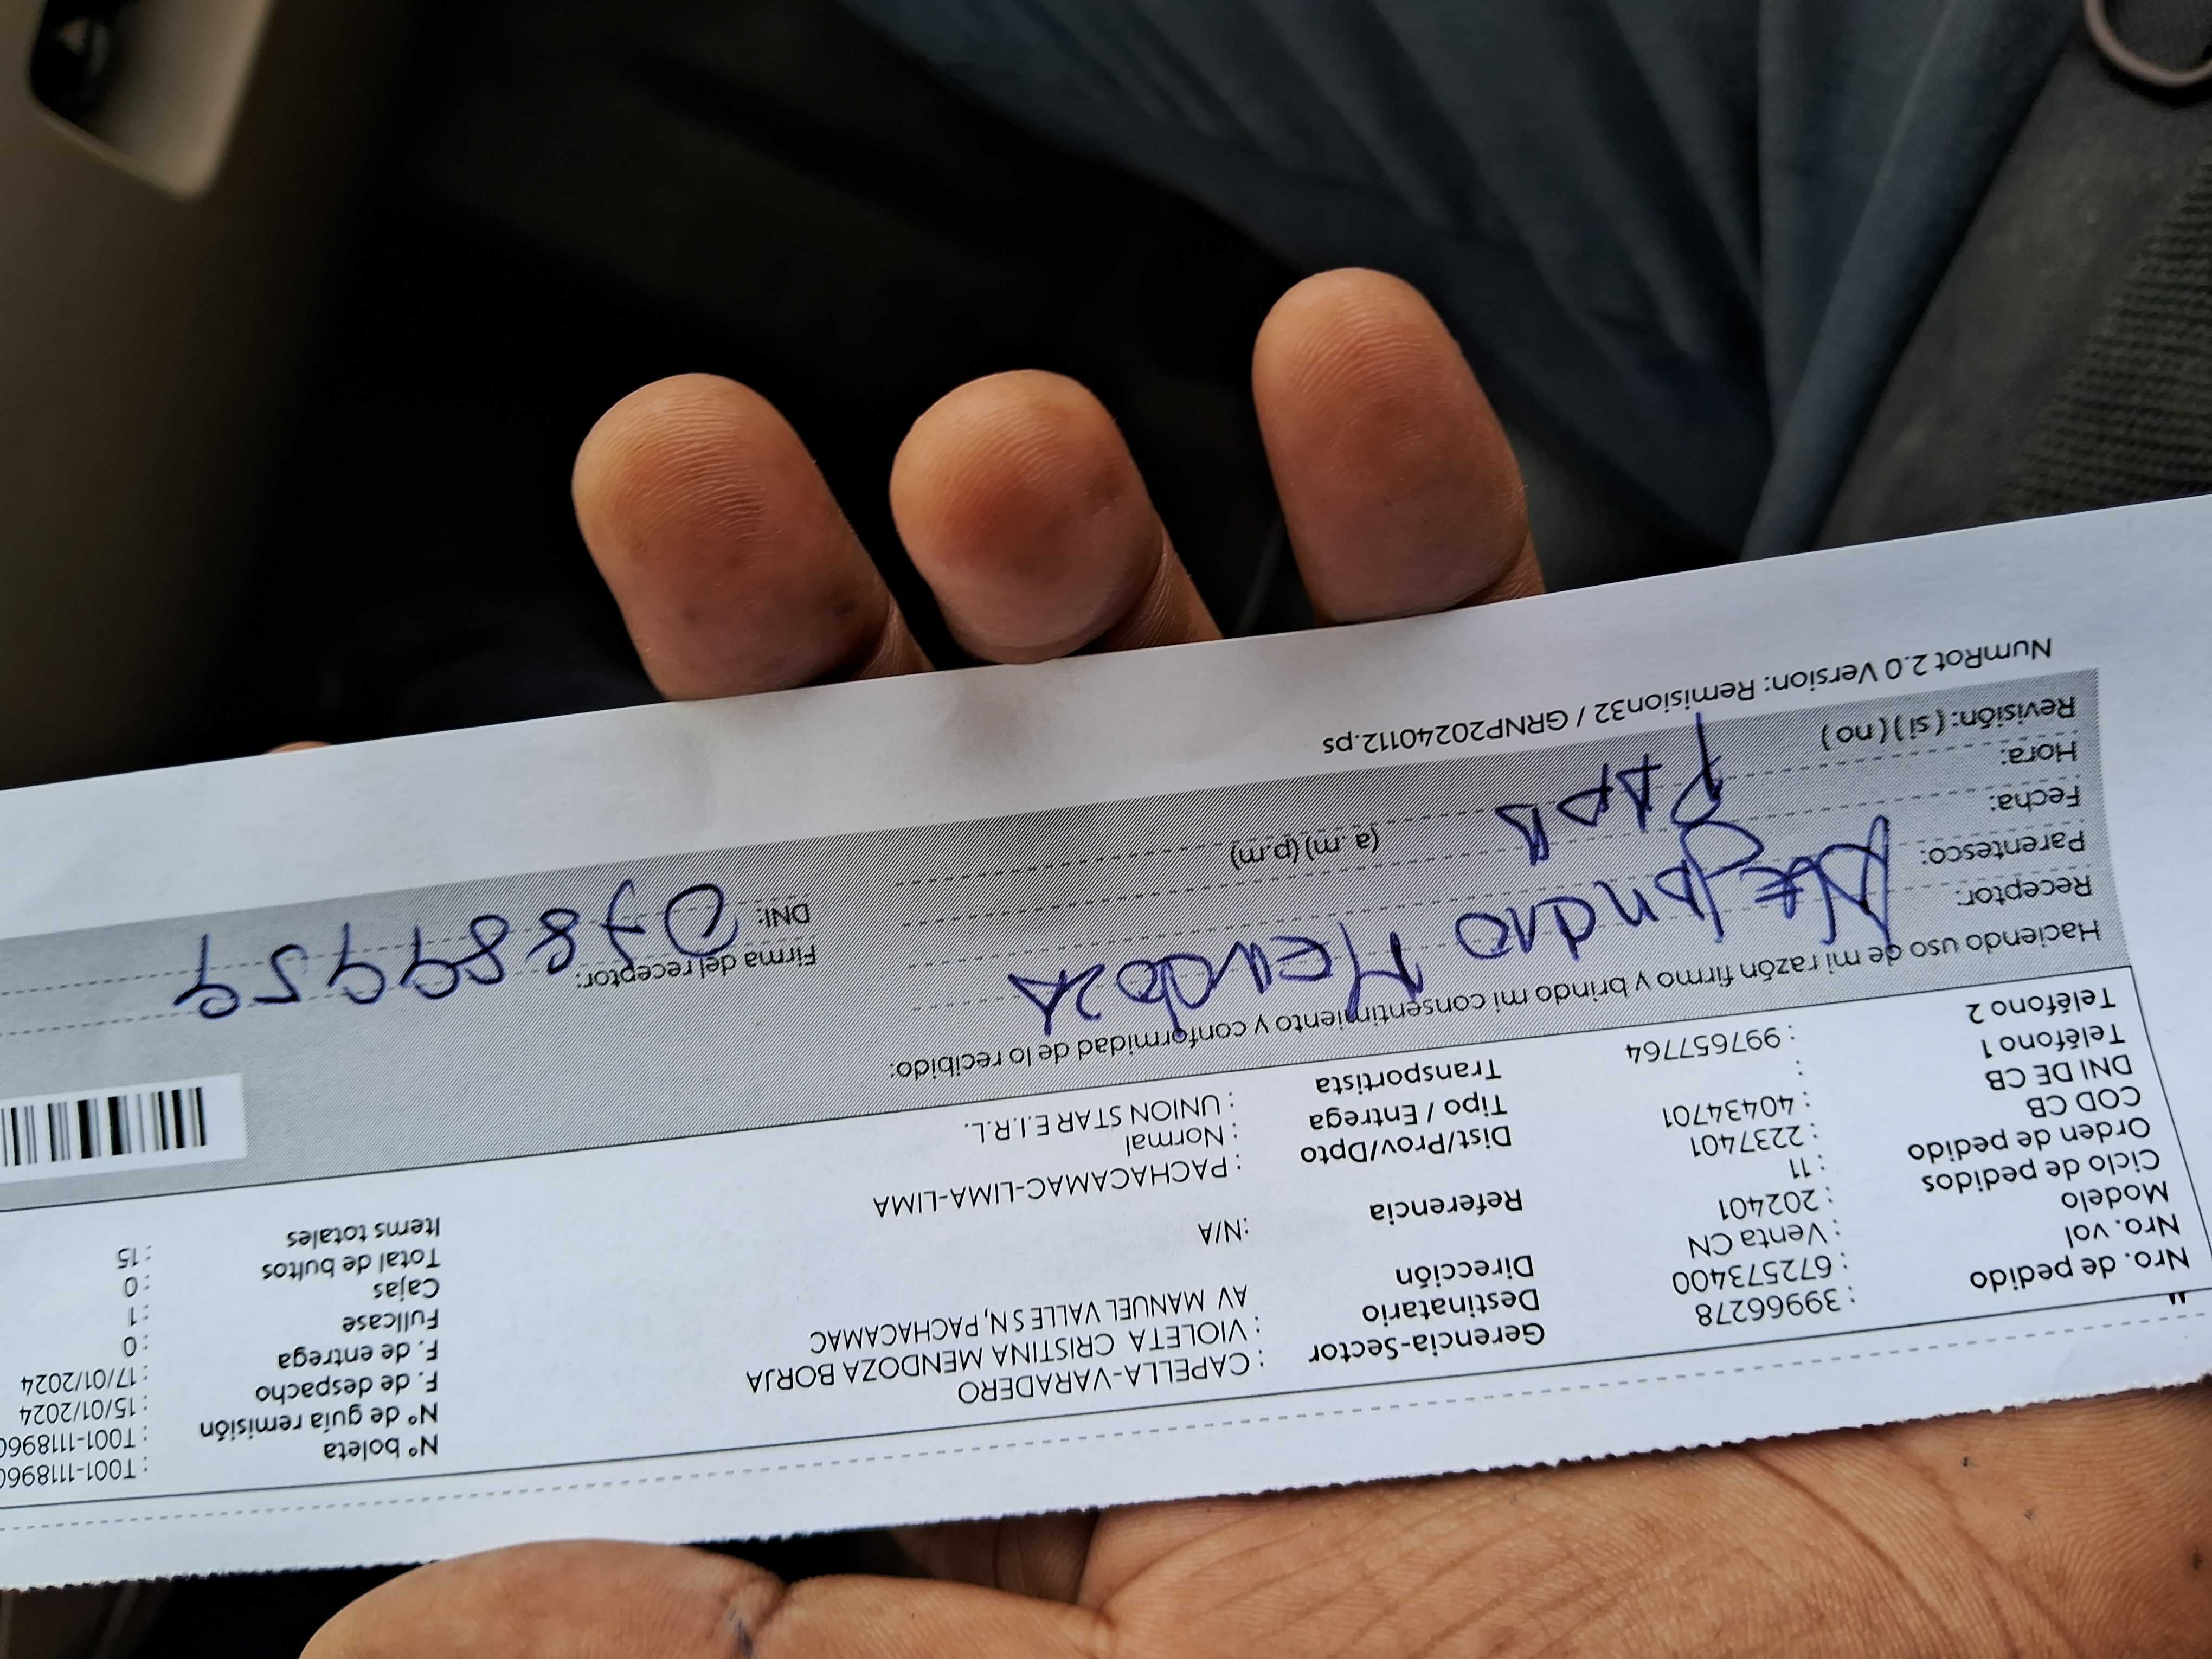 Nro. de pedido : 39966278
Nro. vol : 672573400
Modelo : Venta CN
Ciclo de pedidos : 202401
Orden de pedido : 11
COD CB : 2237401
DNI DE CB : 40434701
Teléfono 1 :
Teléfono 2 : 997657764
Gerencia-Sector : CAPELLA-VARADERO
Destinatario : VIOLETA CRISTINA MENDOZA BORJA
Dirección AV MANUEL VALLE SN, PACHACAMAC
Referencia :N/A
Dist/Prov/Dpto : PACHACAMAC-LIMA-LIMA
Tipo / Entrega : Normal
Transportista : UNION STAR E.I.R.L.
N° boleta : T001-1118960
N° de guía remisión : T001-1118960
F. de despacho : 15/01/2024
F. de entrega : 17/01/2024
Fullcase : 0
Cajas : 1
Total de bultos : 0
Items totales : 15
Haciendo uso de mi razón firmo y brindo mi consentimiento y conformidad de lo recibido:
Receptor: Alejandro Mendoza
Parentesco: PAPA
Fecha:
Hora: (a. m) (p.m)
Revisión: ( si ) ( no )
Firma del receptor:
DNI: 07889959
NumRot 2.0 Version: Remision32 / GRNP20240112.ps